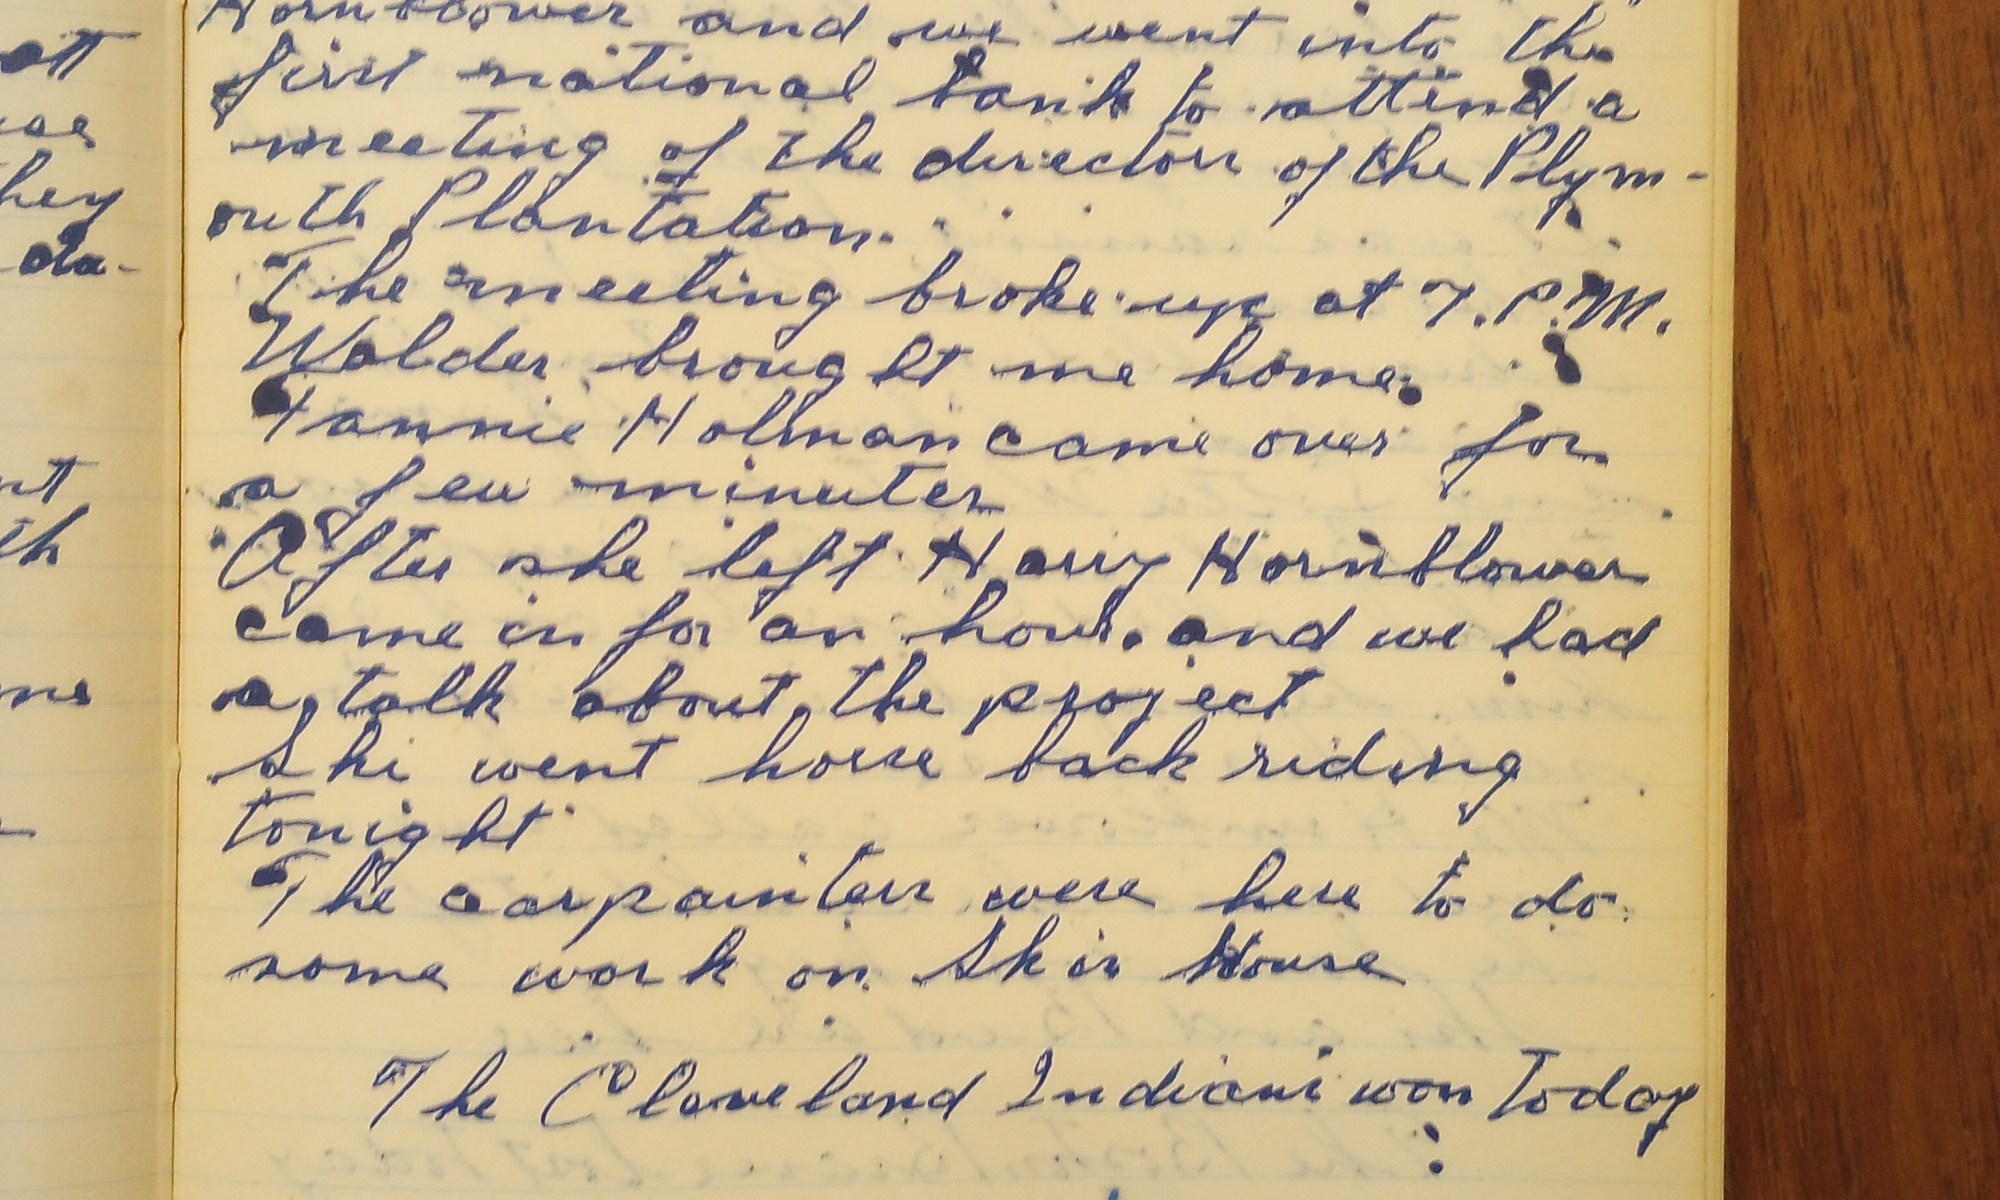 Hornblower and we went into the
first national bank to attend a
meeting of the directors of the Plym-
outh Plantation.
The meeting broke up at 7. P.M.
Walder brought me home.
Fannie Holman came over for
a few minutes
After she left Harry Hornblower
came in for an hour. and we had
a talk about the project
Ski went horse back riding
tonight
The carpainters were here to do
some work on Skis House
The Cleveland Indians won today
ott
hey
da-
nt
th